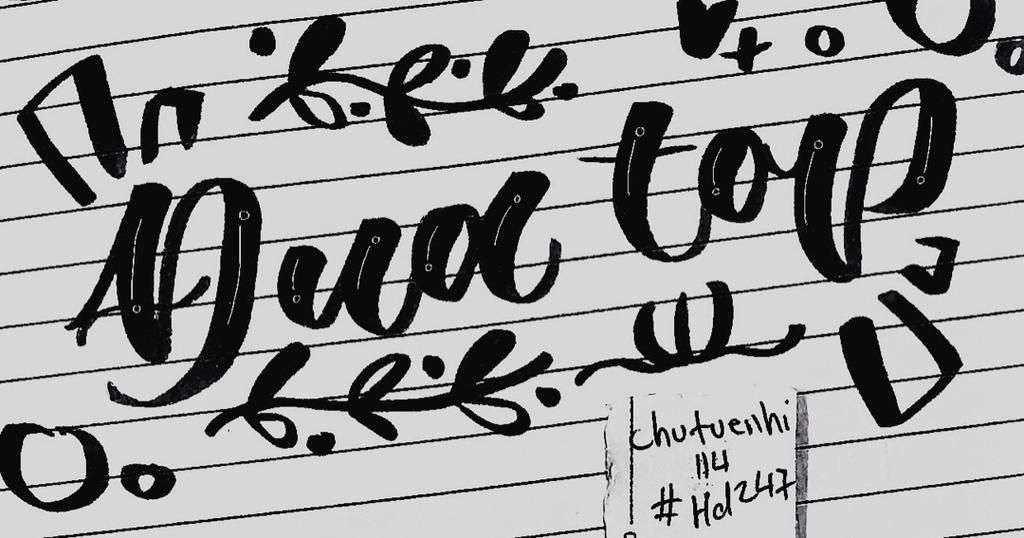 Dua top
chutuenhi
114
#Hd247